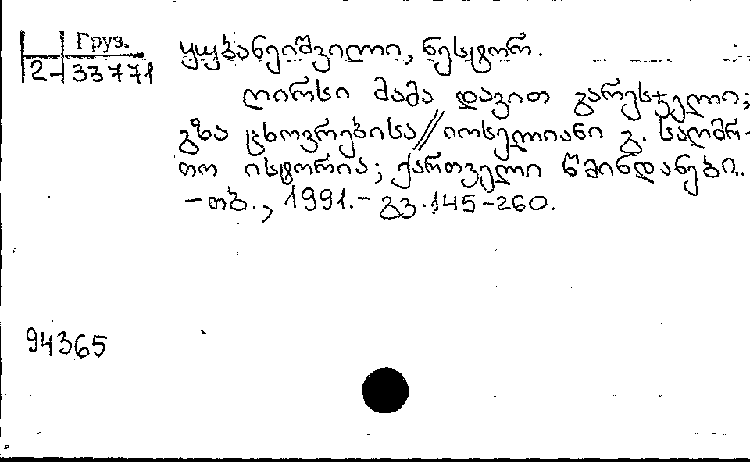 Груз.
2-33771
ყუბანეიშვილი, ნესტორ.
ღირსი მამა დავით გარესჯელი;
გზა ცხოვრებისა//იოსელიანი გ. საღმრ-
თო ისტორია; ქართველი წმინდანები.
-თბ., 1991.- გვ.145-260.
94365